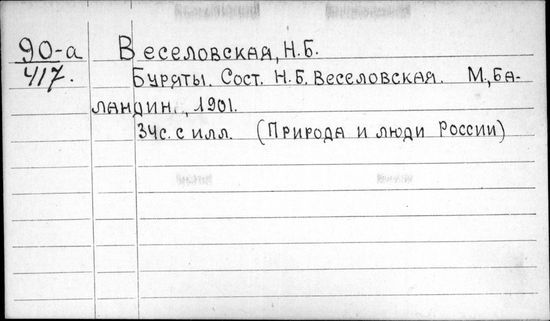 90-а Веселовская, Н.Б.
417. Буряты. Сост. Н.Б. Веселовская. М, Ба-
ландин, 1901.
34с. с илл. (Природа и люди России)